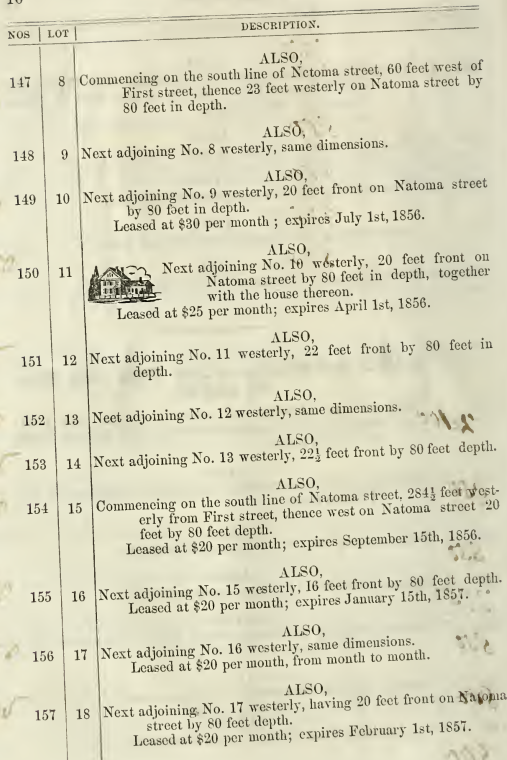 NOS | LOT | DESCRIPTION.
ALSO,
147 8 Commencing on the south line of Netoma street, 60 feet west of
First street, thence 23 feet westerly on Natoma street by
80 feet in depth.
ALSO,
148 9 Next adjoining No. 8 westerly, same dimensions.
ALSO,
149 10 Next adjoining No. 9 westerly, 20 feet front on Natoma street
by 80 feet in depth.
Leased at $30 per month ; expires July 1st, 1856.
ALSO,
150 11 Next adjoining No. 10 westerly, 20 feet front on
Natoma street by 80 feet in depth, together
with the house thereon.
Leased at $25 per month; expires April 1st, 1856.
ALSO,
151 12 Next adjoining No. 11 westerly, 22 feet front by 80 feet in
depth.
ALSO,
152 13 Neet adjoining No. 12 westerly, same dimensions.
ALSO,
153 14 Next adjoining No. 13 westerly, 22½ feet front by 80 feet depth.
ALSO,
154 15 Commencing on the south line of Natoma street, 284½ feet west-
erly from First street, thence west on Natoma street 20
feet by 80 feet depth.
Leased at $20 per month; expires September 15th, 1856.
ALSO,
155 16 Next adjoining No. 15 westerly, 16 feet front by 80 feet depth.
Leased at $20 per month; expires January 15th, 1857.
ALSO,
156 17 Next adjoining No. 16 westerly, same dimensions.
Leased at $20 per month, from month to month.
ALSO,
157 18 Next adjoining No. 17 westerly, having 20 feet front on Natoma
street by 80 feet depth.
Leased at $20 per month; expires February 1st, 1857.